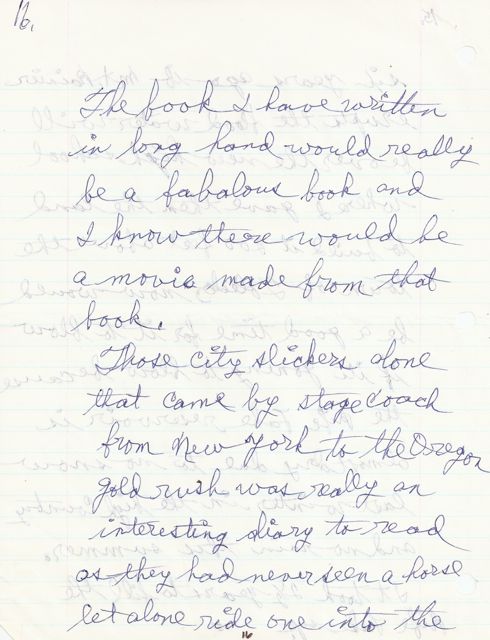 16.
The book I have written
in long hand would really
be a fabalous book and
I know there would be
a movie made from that
book.
Those city slickers alone
that came by stagecoach
from New York to the Oregon
gold rush was really an
interesting diary to read
as they had never seen a horse
let alone ride one into the
16